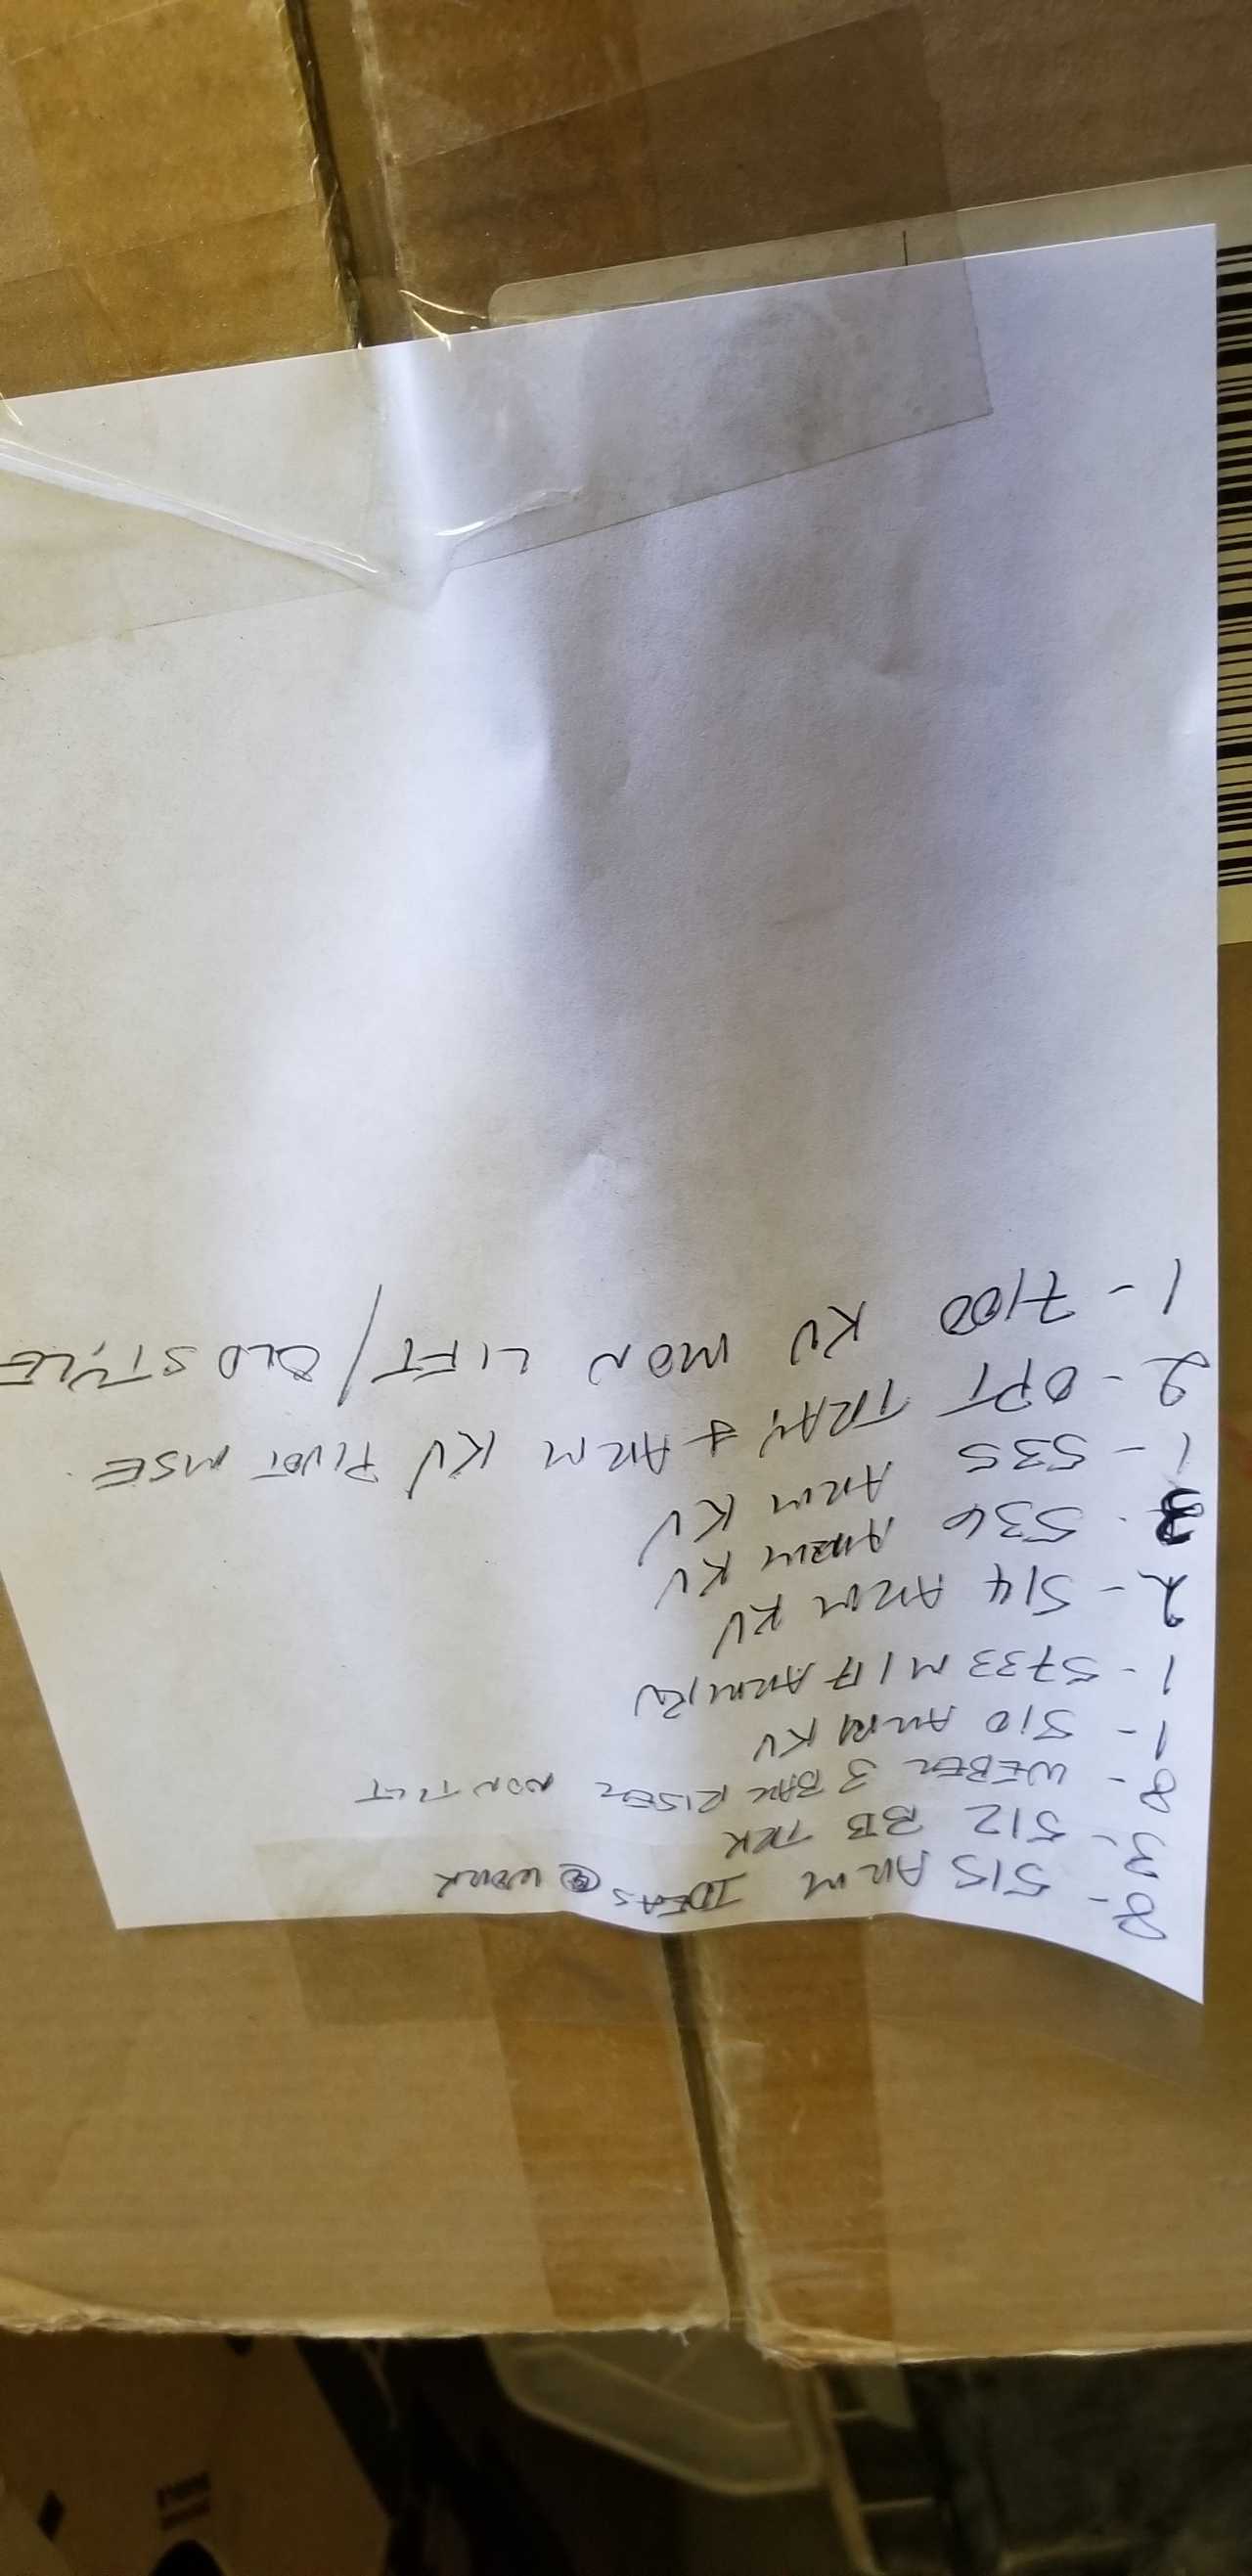 8 - 515 ARM IDEAS @ WORK
3 - 512 BB TRK
8 - WEBER 3 BAR RISER NON TILT
1 - 510 ARM KV
1 - 5733 M/A ARM KV
2 - 514 ARM KV
3 - 536 ARM KV
1 - 535 ARM KV
2 - OPT TRAY & ARM KV PIVOT MSE
1 - 7100 KV MON LIFT / OLD STYLE